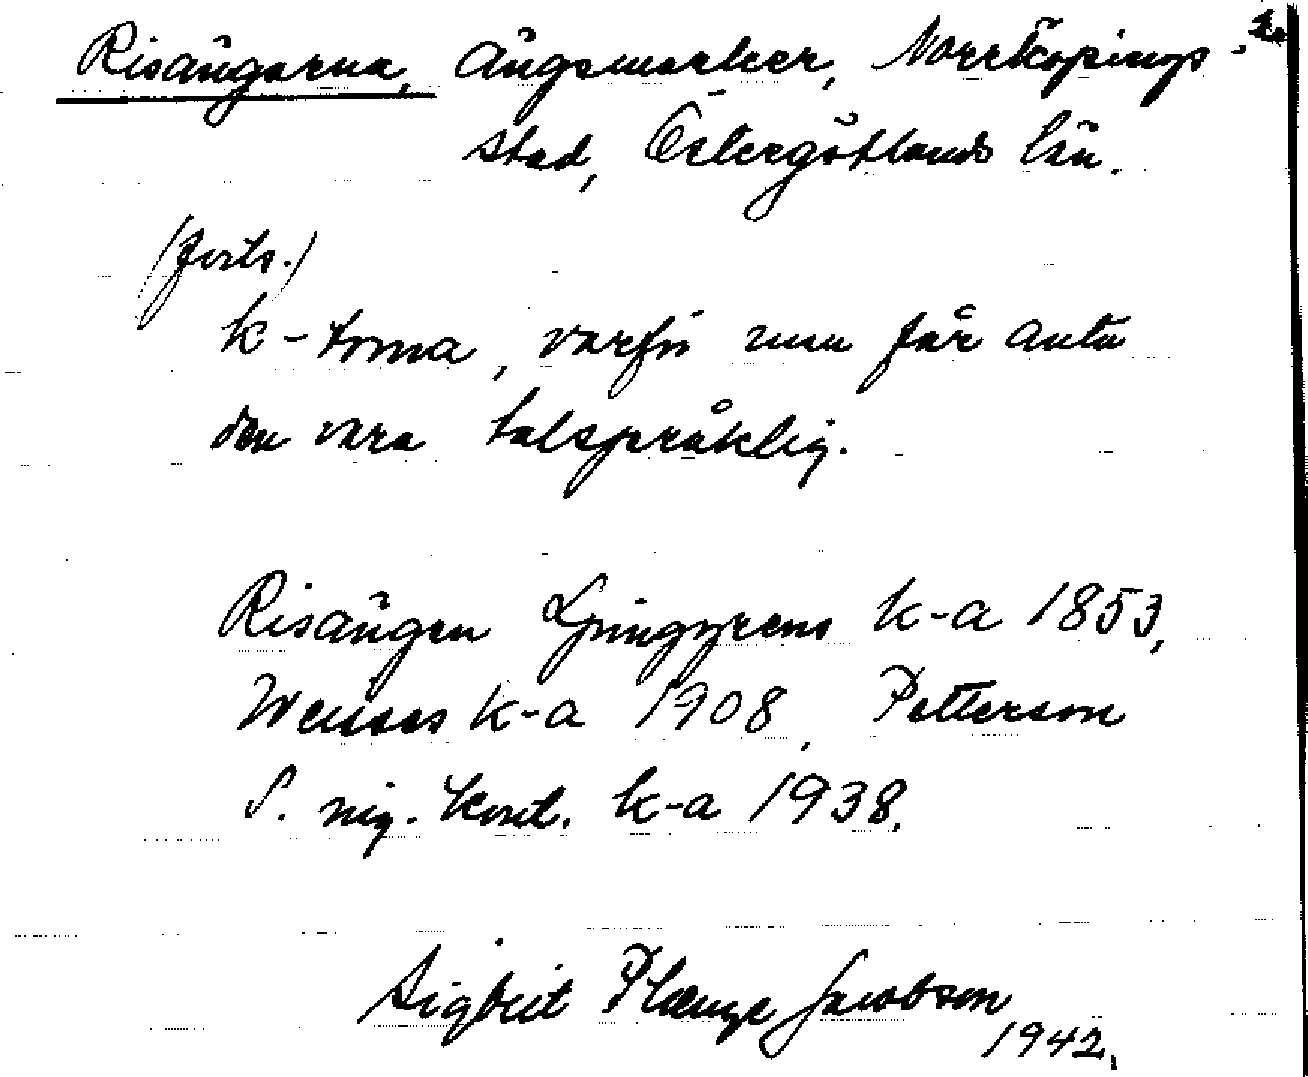 Risängarna, ängsmarker, Norrköpings
stad, Östergötlands län.
(forts.)
k-torna, varför man får anta
den vara talspråklig.
Risängen Ljunggrens k-a 1853,
Wenses k-a 1908, Petterson
S. ing. kont. k-a 1938.
Sigbrit Plænge Jacobson
1942.